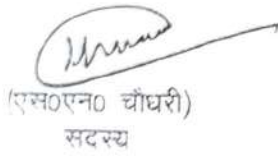 (एस0एन0 चौधरी)
सदस्य